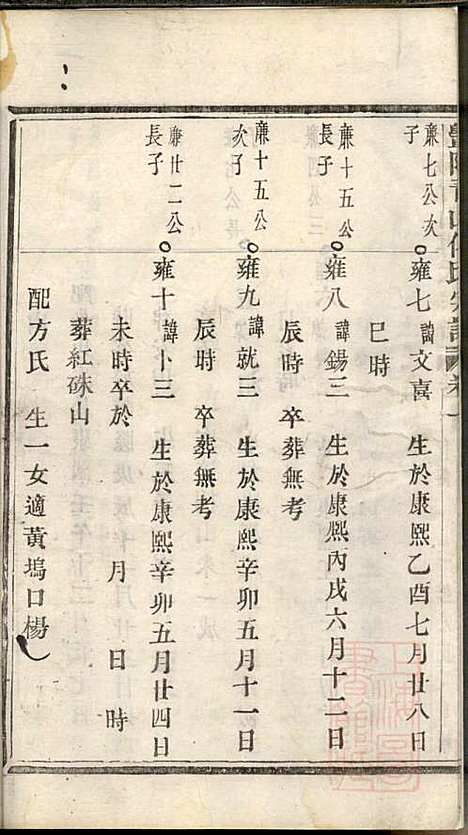 廉七公次子
雍七諱文喜 生於康熙乙酉七月廿八日
巳時
廉十五公長子
雍八諱錫三 生於康熙丙戌六月十二日
辰時 卒葬無考
廉十五公次子
雍九諱就三 生於康熙辛卯五月十一日
辰時 卒葬無考
廉廿二公長子
雍十諱卜三 生於康熙辛卯五月廿四日
未時卒於 月 日 時
葬紅硃山
配方氏 生一女適黃塢口楊